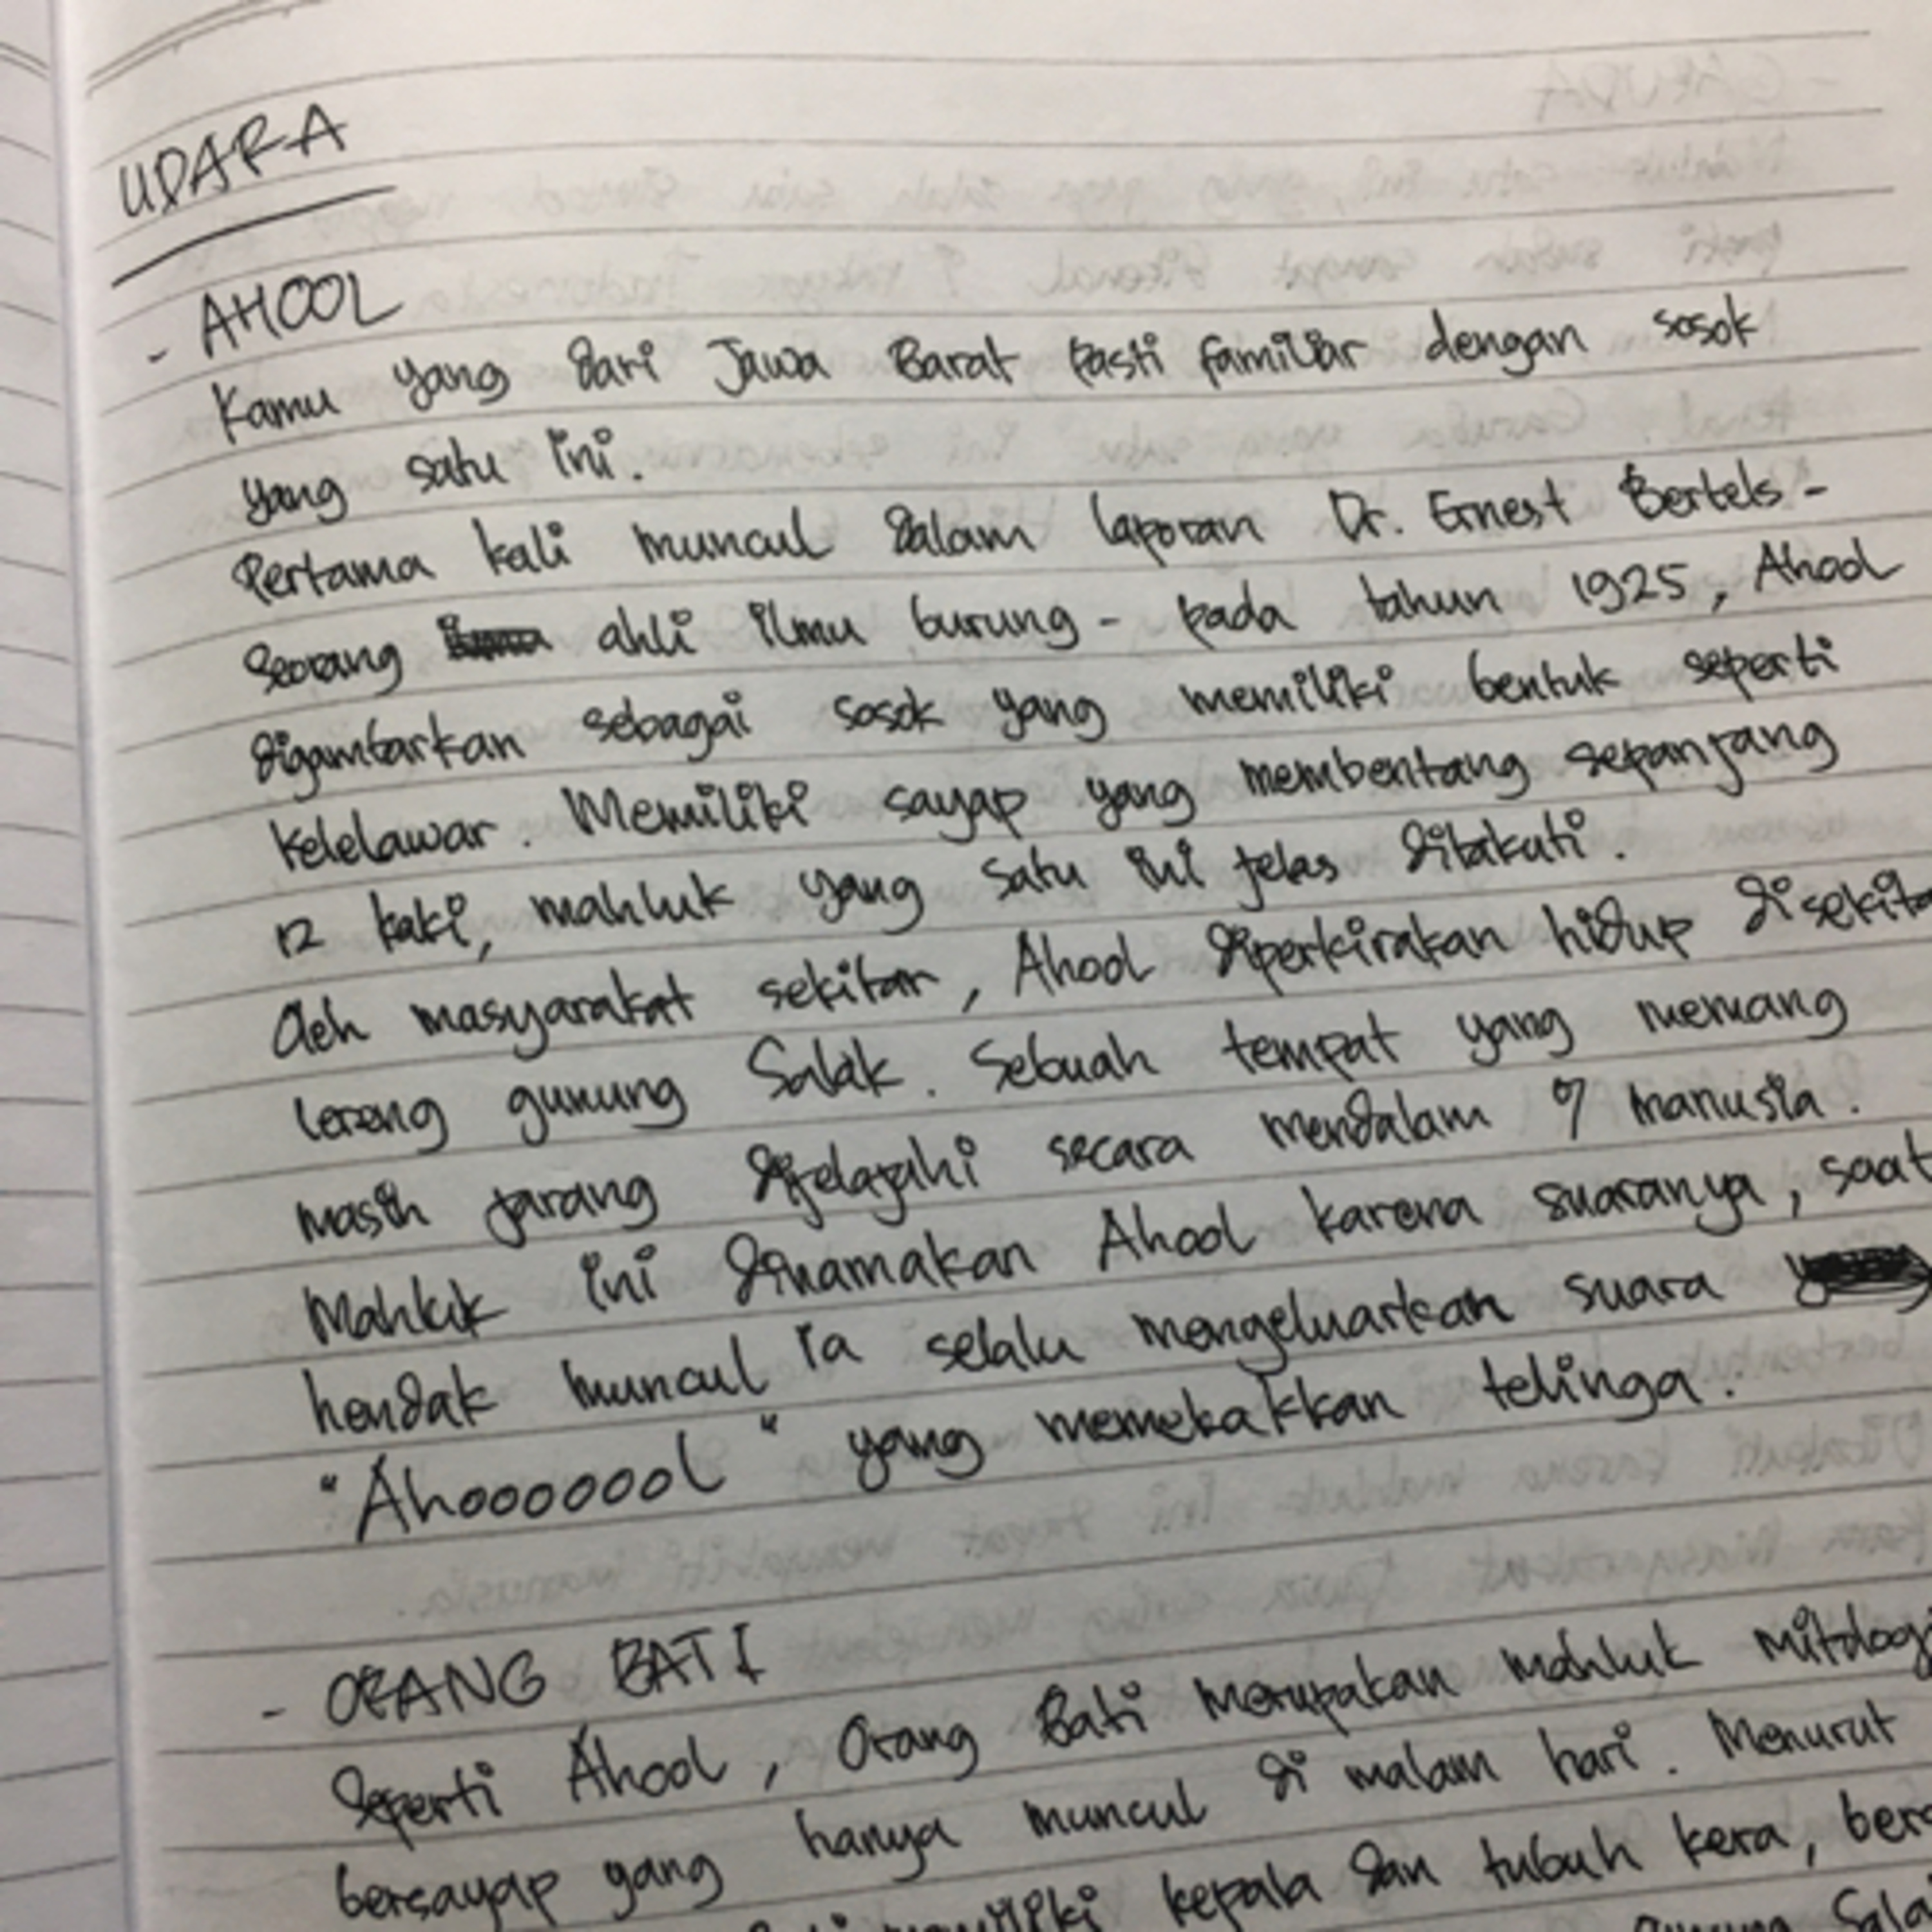 UDARA
- AHOOL
Kamu yang dari Jawa Barat pasti familiar dengan sosok
yang satu ini.
Pertama kali muncul dalam laporan Dr. Ernest Bertels -
Seorang ahli ilmu burung - pada tahun 1925, Ahool
digambarkan sebagai sosok yang memiliki bentuk seperti
Kelelawar. Memiliki sayap yang membentang sepanjang
12 kaki, mahluk yang satu ini jelas ditakuti.
Oleh masyarakat sekitar, Ahool diperkirakan hidup disekita
lereng gunung Salak. Sebuah tempat yang memang
masih jarang dijelajahi secara mendalam o/ manusia.
Mahluk ini dinamakan Ahool karena suaranya, saat
hendak muncul ia selalu mengeluarkan suara
"Ahooooool" yang memekakkan telinga.
- ORANG BATI
Seperti Ahool, Orang Bati merupakan mahluk mitolog
bersayap yang hanya muncul di malam hari. Menurut
kepala dan tubuh kera, ber